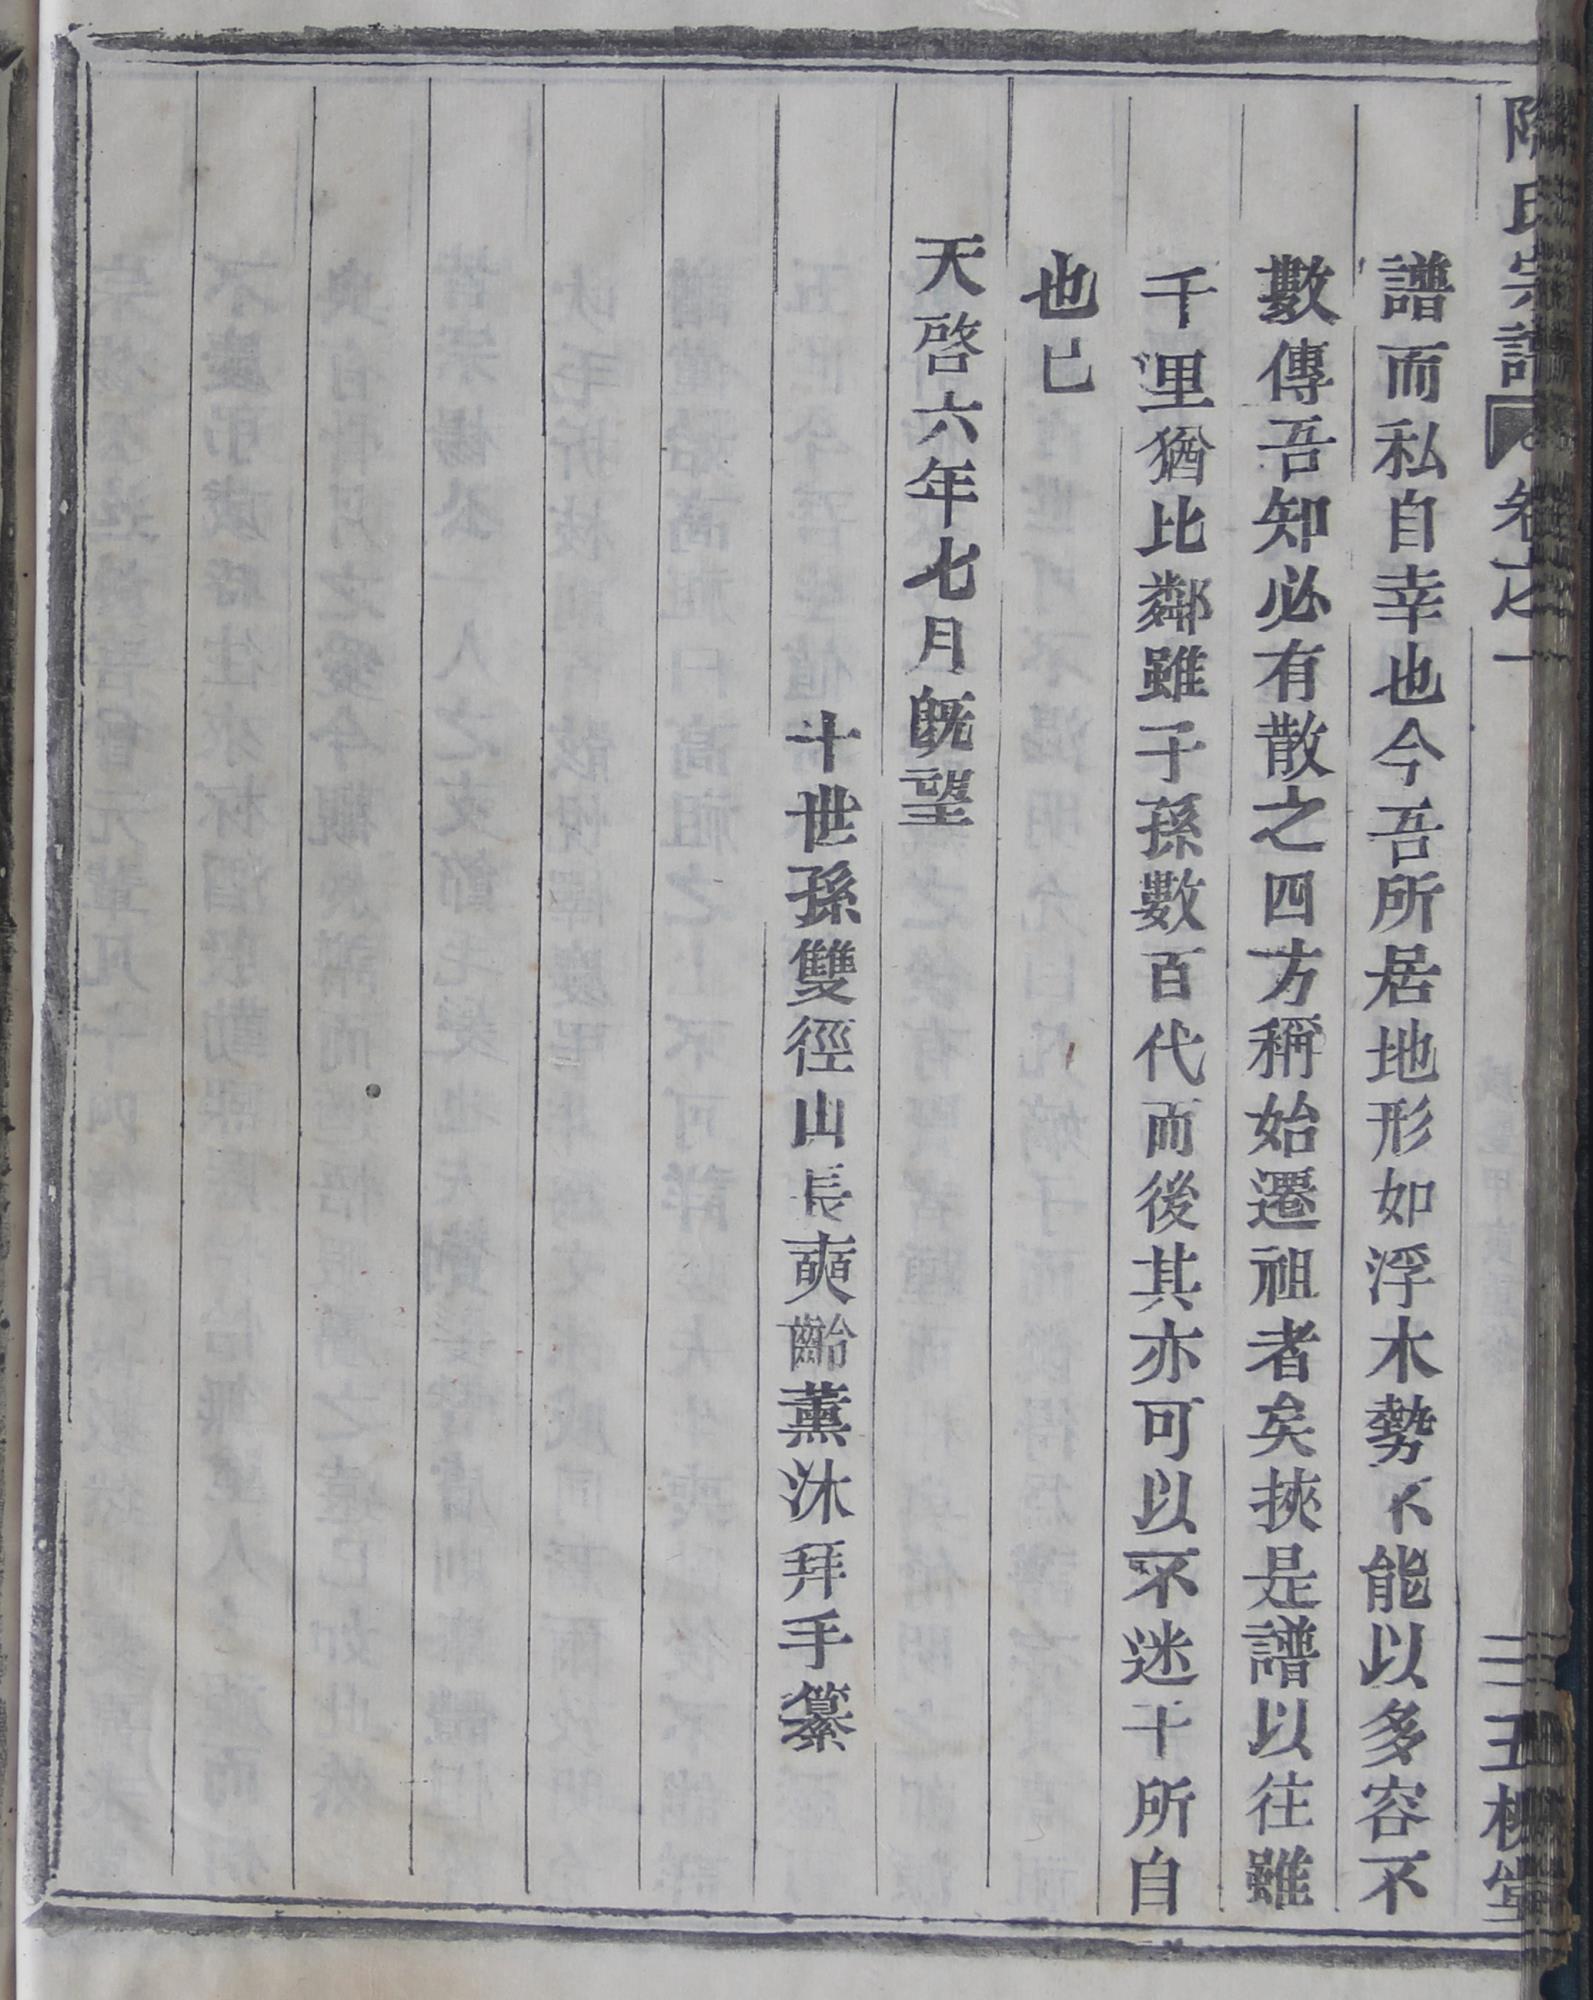 氏宗譜 卷之一 三 五桂堂
譜而私自幸也今吾所居地形如浮木勢不能以多容不
數傳吾知必有散之四方稱始遷祖者矣挾是譜以往雖
千里猶比鄰雖子孫數百代而後其亦可以不迷于所自
也已
天啓六年七月旣望
十世孫雙徑山長奭齡薰沐拜手纂